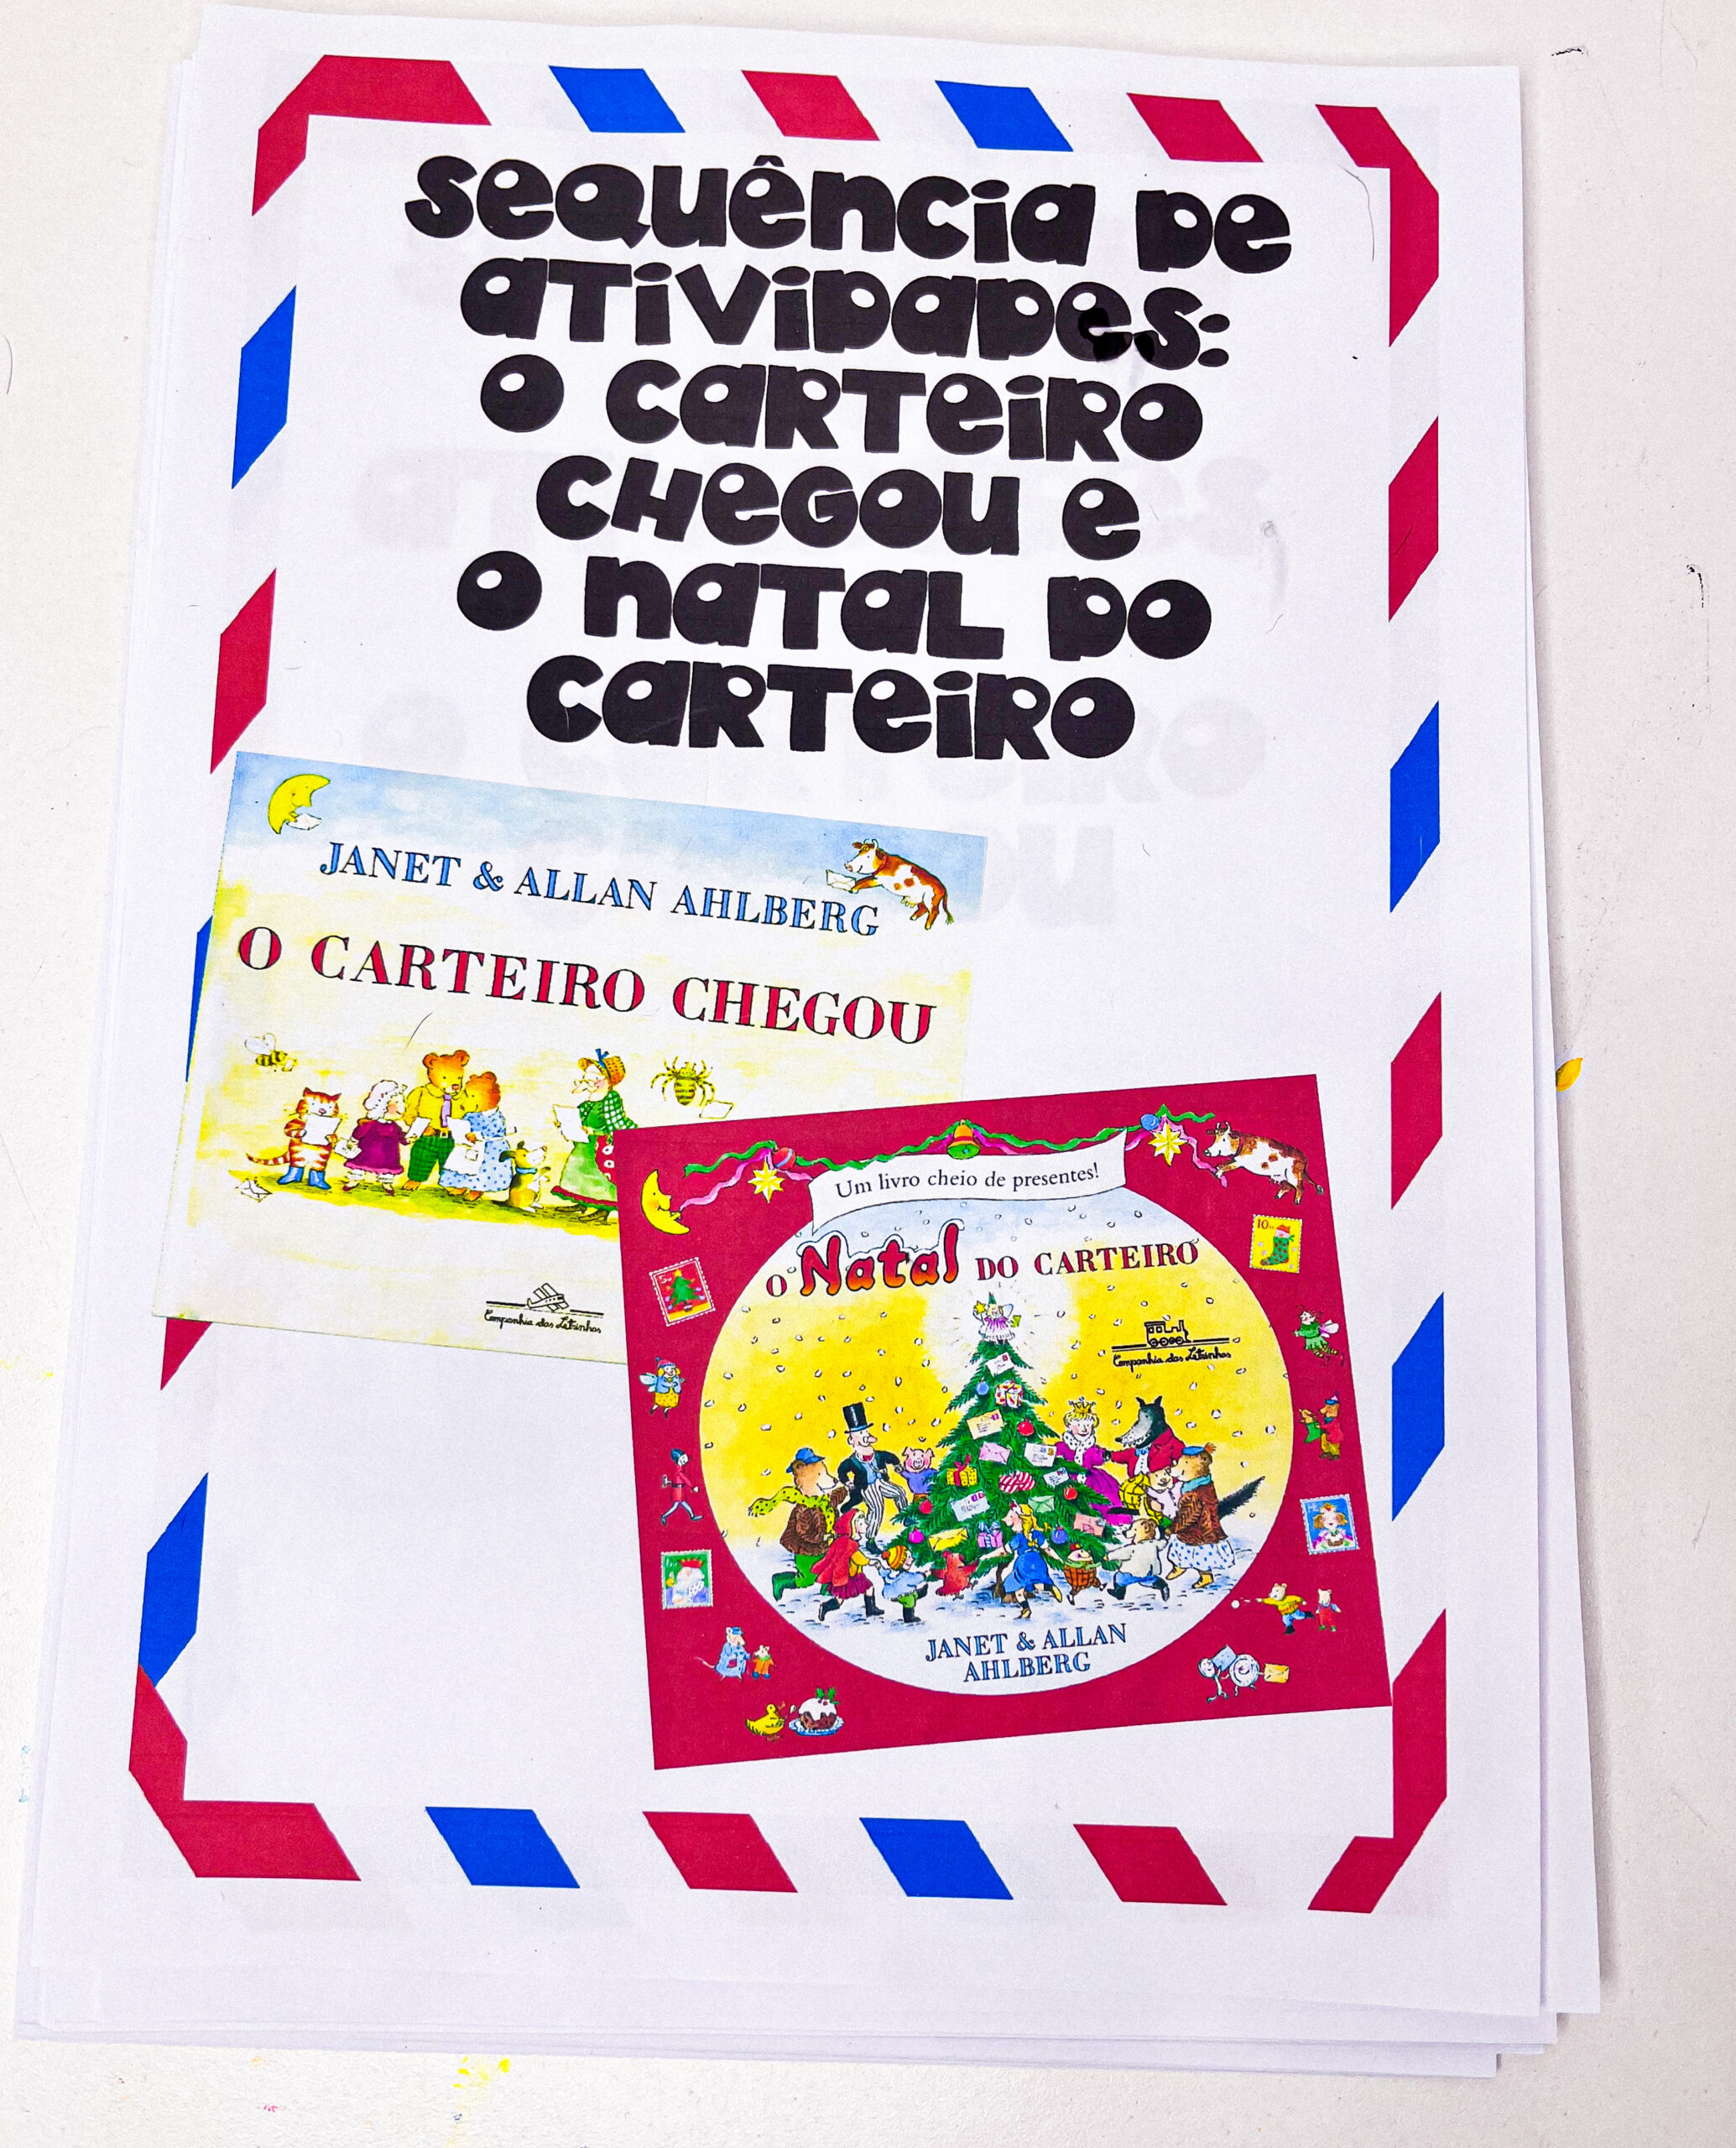 sequência de
atividades:
o carteiro
chegou e
o natal do
carteiro
JANET & ALLAN AHLBERG
O CARTEIRO CHEGOU
Companhia das Letrinhas
Um livro cheio de presentes!
O Natal DO CARTEIRO
Companhia das Letrinhas
JANET & ALLAN
AHLBERG